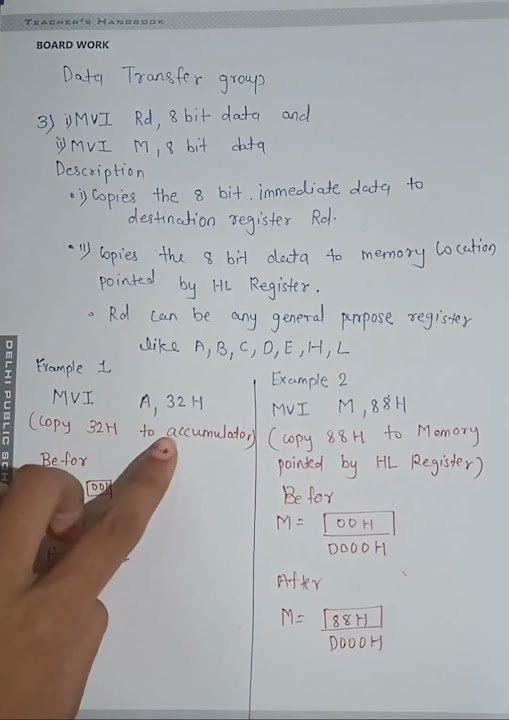 TEACHER'S HANDBOOK
BOARD WORK
Data Transfer group
3) i) MVI Rd, 8 bit data and
ii) MVI M, 8 bit data
Description
• i) Copies the 8 bit immediate data to
destination register Rd.
• ii) Copies the 8 bit data to memory location
pointed by HL Register.
• Rd can be any general purpose register
like A, B, C, D, E, H, L
Example 1
MVI A, 32H
(copy 32H to accumulator)
Befor
00H
Example 2
MVI M, 88H
(copy 88H to Memory
pointed by HL Register)
Befor
M= 00H
D000H
After
M= 88H
D000H
DELHI PUBLIC SCH